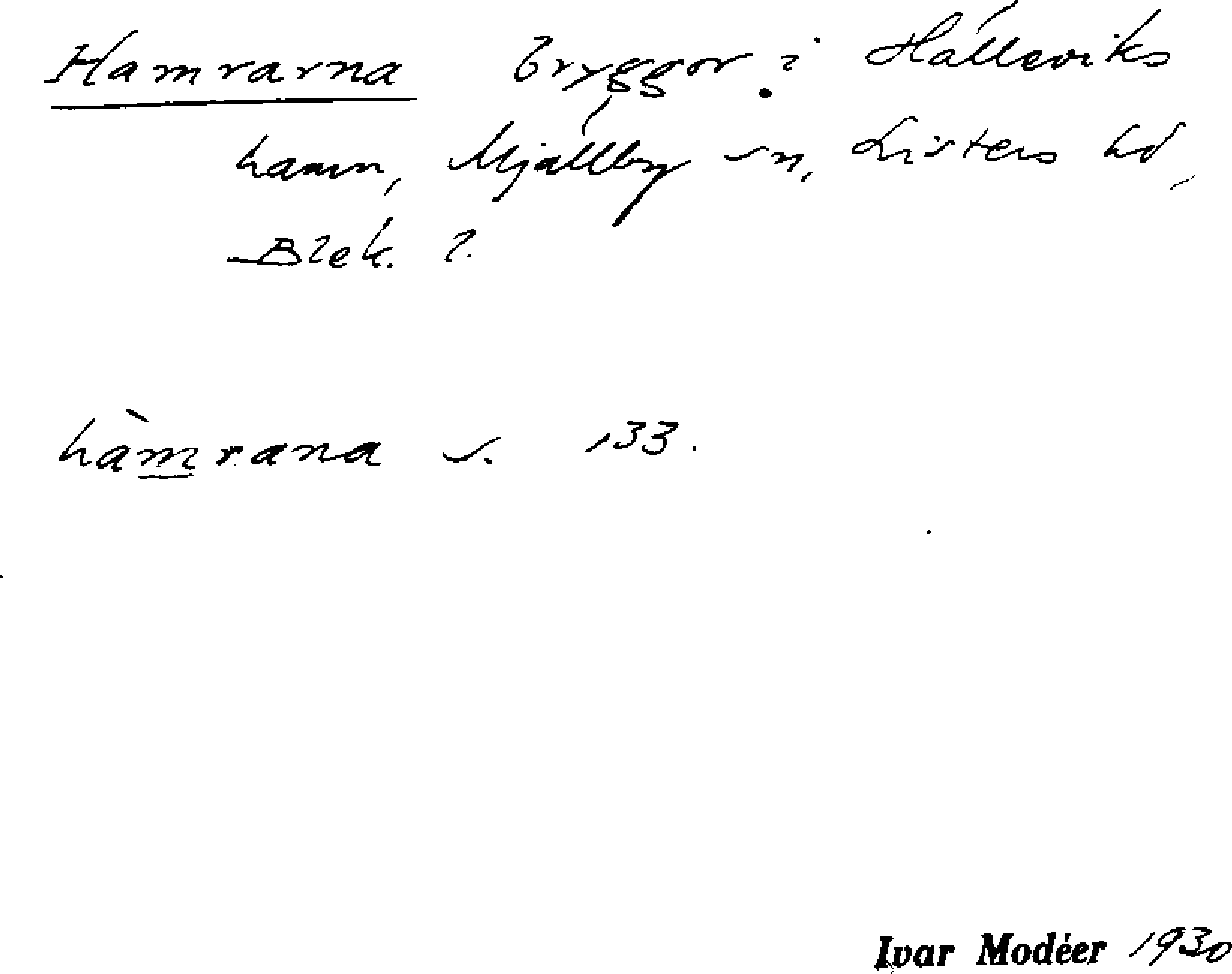 Hamrarna bryggor i Hälleviks
hamn, Mjällby sn, Listers hd,
Blek. l.
hàmrana s. 133.
Ivar Modéer 1930